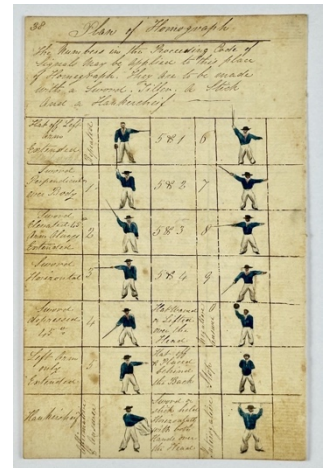 38
Plan of Homograph.
The Numbers in the Preceeding Code of
Signals May be applied to this plan
of Homograph. They are to be made
with a Sword, Tiller, a Stick,
and a Hankercheif
Hat off Left
Arm
Extended
581
6
Sword
Perpendicular
over Body
1
582
7
Sword
Elevated 45
Arm
Extended
2
583
8
Sword
Horizontal
3
584
9
Sword
depressed
45°
4
Hat
Lifted
over the
Head
0
Left Arm
only
Extended
5
Hat off
& Placed
behind
the Back
Hankercheif
Sword or
Stick held
with both
Hands over
the Head